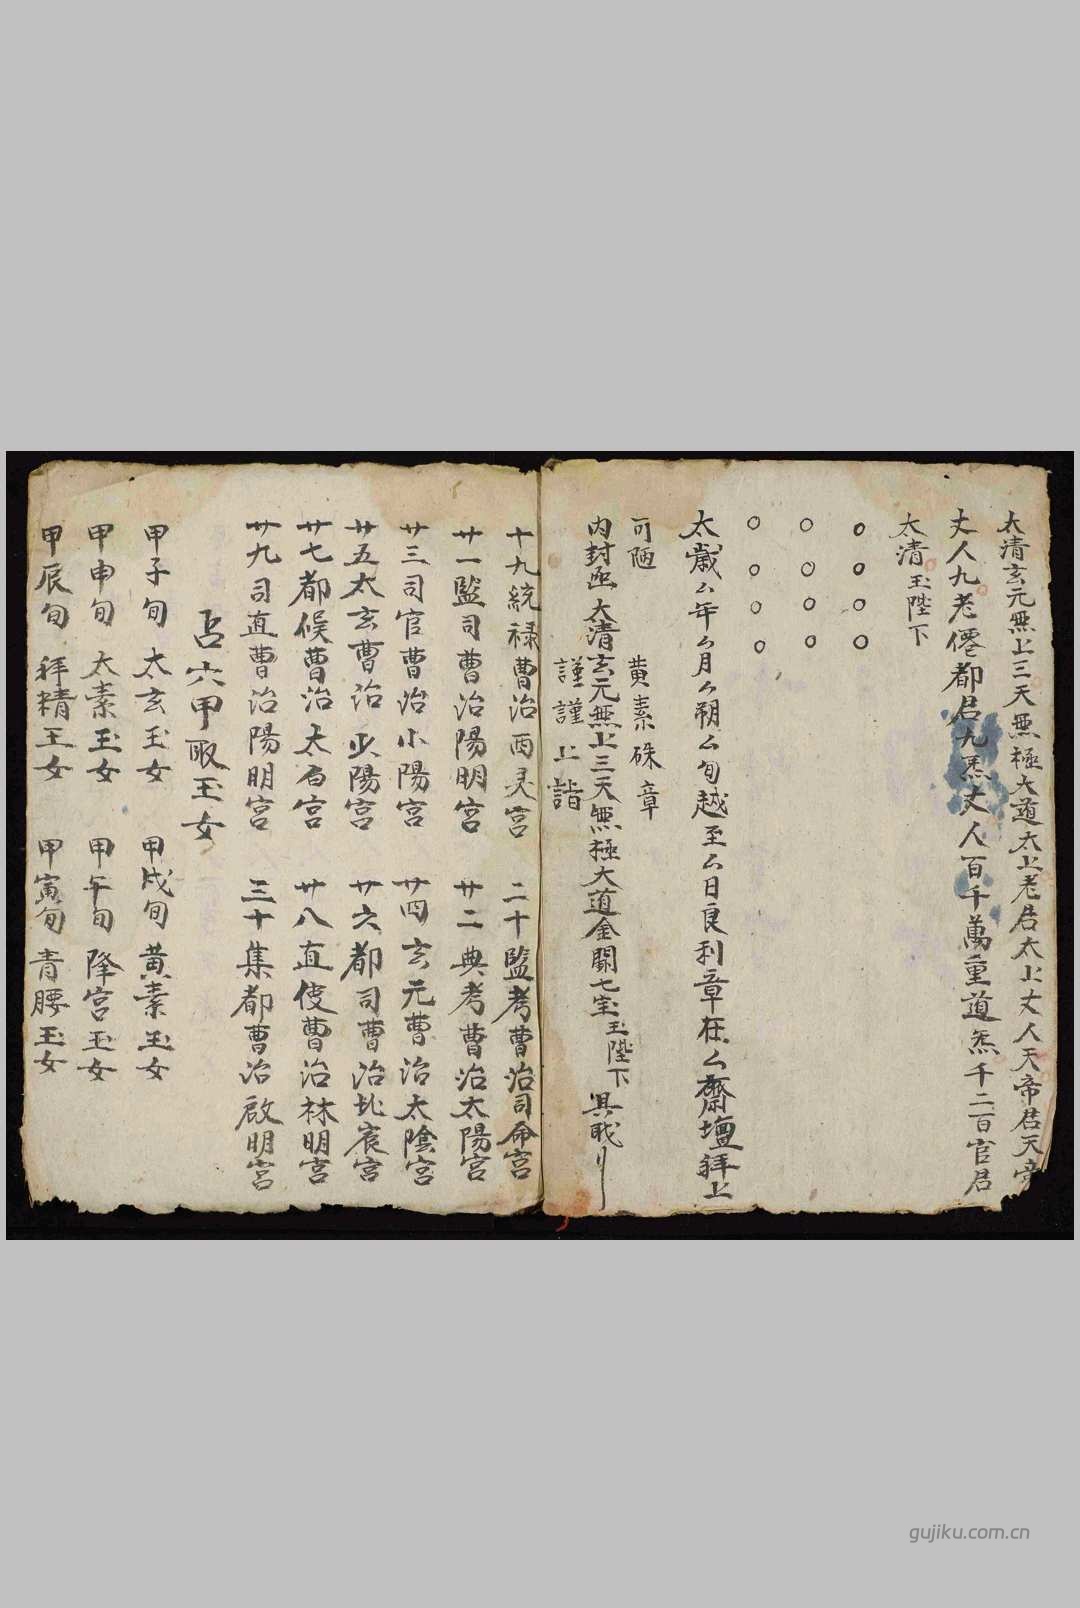 太清玄元無上三天無極大道太上老君太上丈人天帝君天帝
丈人九老僊都君九炁丈人百千萬重道炁千二百官君
太清玉陛下
○○○○
○○○○
○○○○
太歲厶年厶月厶朔厶旬越至厶日良利章在厶齋壇拜上
可陋 黄素硃章
内封函 太清玄元無上三天無極大道金闕七宝玉陛下 具职
謹謹上詣
十九統禄曹治西灵宫 二十監考曹治司命宫
廿一監司曹治陽明宫 廿二典考曹治太陽宫
廿三司官曹治小陽宫 廿四玄元曹治太陰宫
廿五太玄曹治少陽宫 廿六都司曹治北宸宫
廿七都候曹治太白宫 廿八直使曹治林明宫
廿九司直曹治陽明宫 三十集都曹治啟明宫
召六甲取玉女
甲子旬 太玄玉女 甲戌旬 黄素玉女
甲申旬 太素玉女 甲午旬 降宫玉女
甲辰旬 拜精玉女 甲寅旬 青腰玉女
gujiku.com.cn